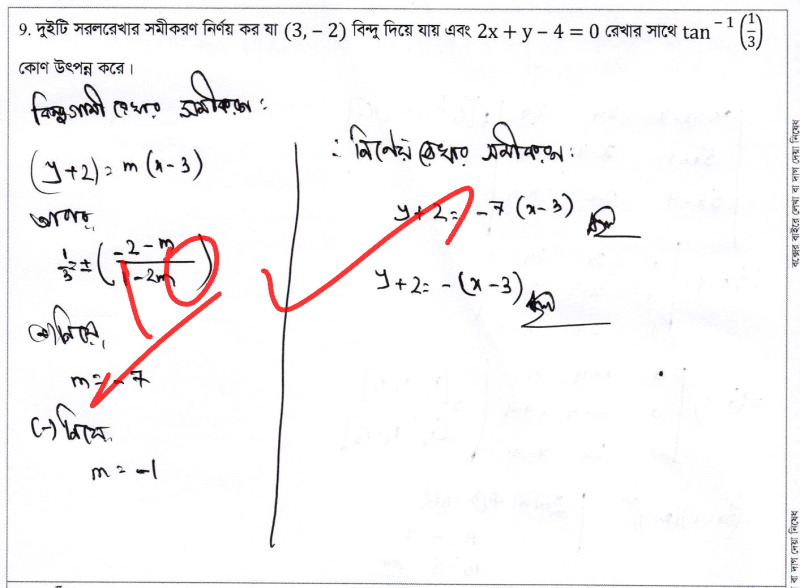 9. দুইটি সরলরেখার সমীকরণ নির্ণয় কর যা (3, – 2) বিন্দু দিয়ে যায় এবং 2x + y – 4 = 0 রেখার সাথে tan⁻¹(1/3)
কোণ উৎপন্ন করে।
বিন্দুগামী রেখার সমীকরণ:
(y+2) = m (x-3)
আবার,
1/3 = ± ((-2-m)/(1-2m))
(+) নিয়ে,
m = -7
(-) নিয়ে,
m = -1
10
∴ নির্ণেয় রেখার সমীকরণ:
y+2 = -7 (x-3)
y+2 = -(x-3)
বক্সের বাইরে লেখা বা দাগ দেয়া নিষেধ
বা দাগ দেয়া নিষেধ